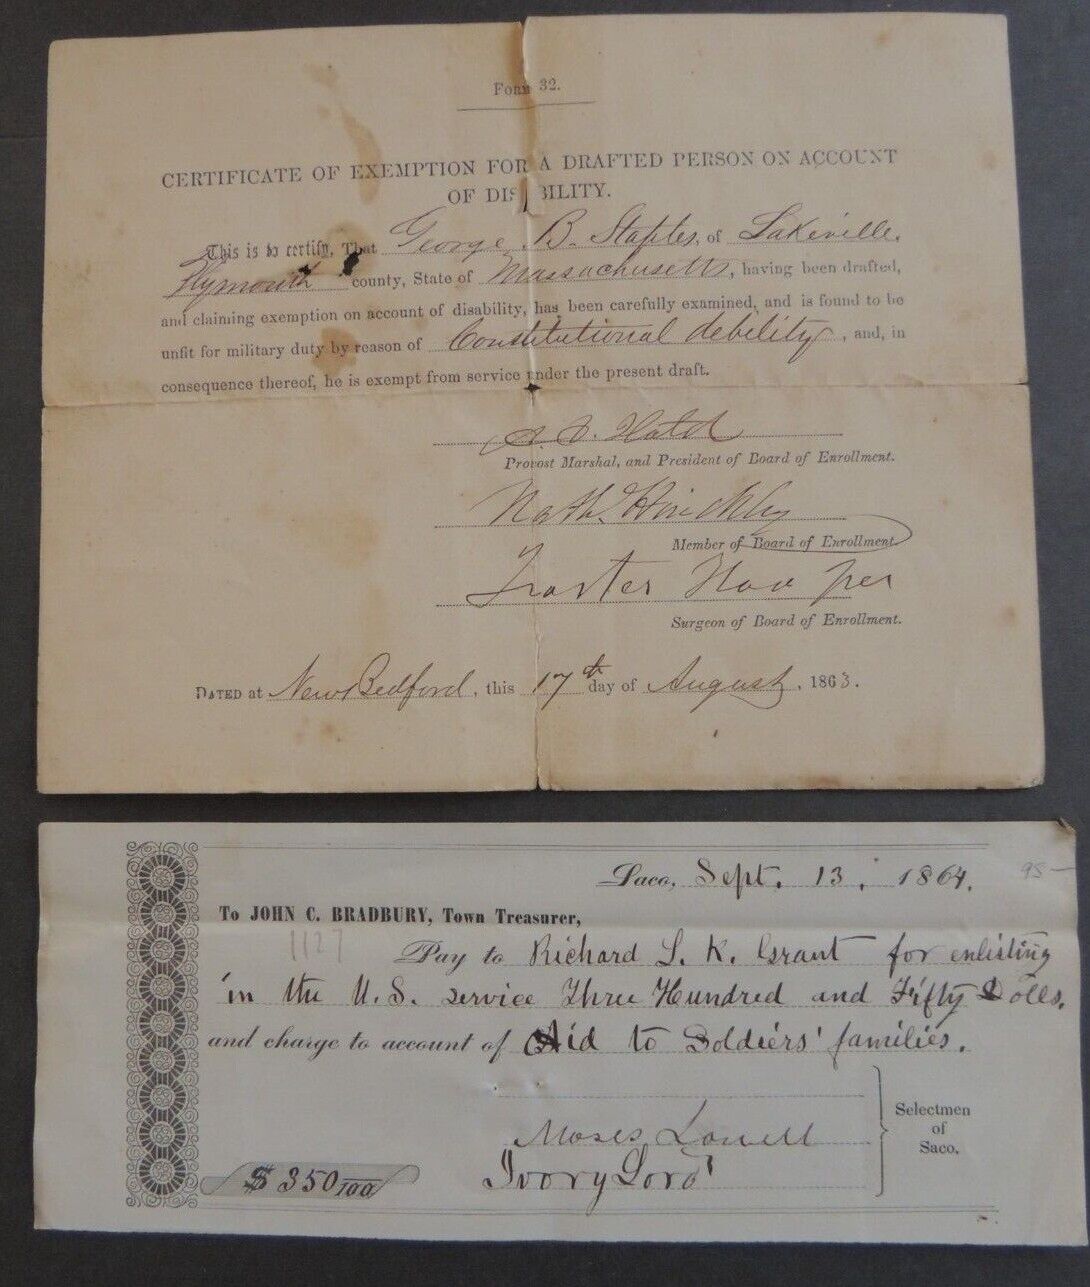 Form 32.
CERTIFICATE OF EXEMPTION FOR A DRAFTED PERSON ON ACCOUNT
OF DISABILITY.
This is to certify, That George B. Staples, of Lakeville,
Plymouth county, State of Massachusetts, having been drafted,
and claiming exemption on account of disability, has been carefully examined, and is found to be
unfit for military duty by reason of Constitutional debility, and, in
consequence thereof, he is exempt from service under the present draft.
Hatch
Provost Marshal, and President of Board of Enrollment.
Nath. Hinckley
Member of Board of Enrollment.
Foster Hooper
Surgeon of Board of Enrollment.
DATED at New Bedford, this 17th day of August, 1863.
Saco, Sept. 13, 1864.
95-
To JOHN C. BRADBURY, Town Treasurer,
1127
Pay to Richard L. K. Grant for enlisting
in the U.S. service Three Hundred and Fifty Dolls.
and charge to account of Aid to Soldiers' families.
Moses Lowell
Ivory Lord
Selectmen
of
Saco.
$ 350/100